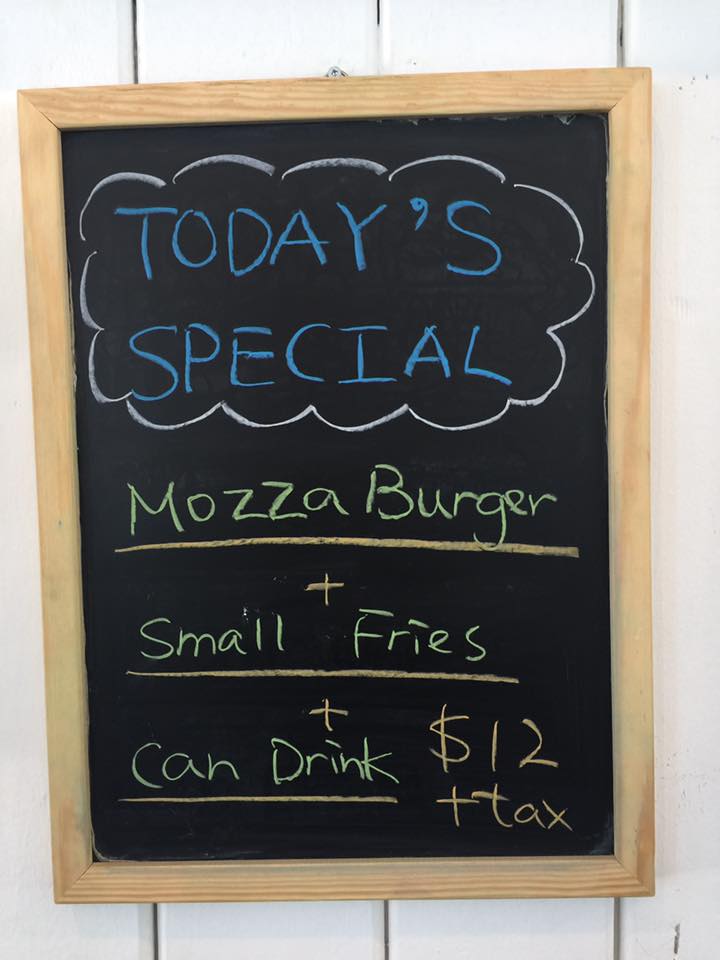 TODAY'S
SPECIAL
Mozza Burger
+
Small Fries
+
Can Drink
$12
+tax